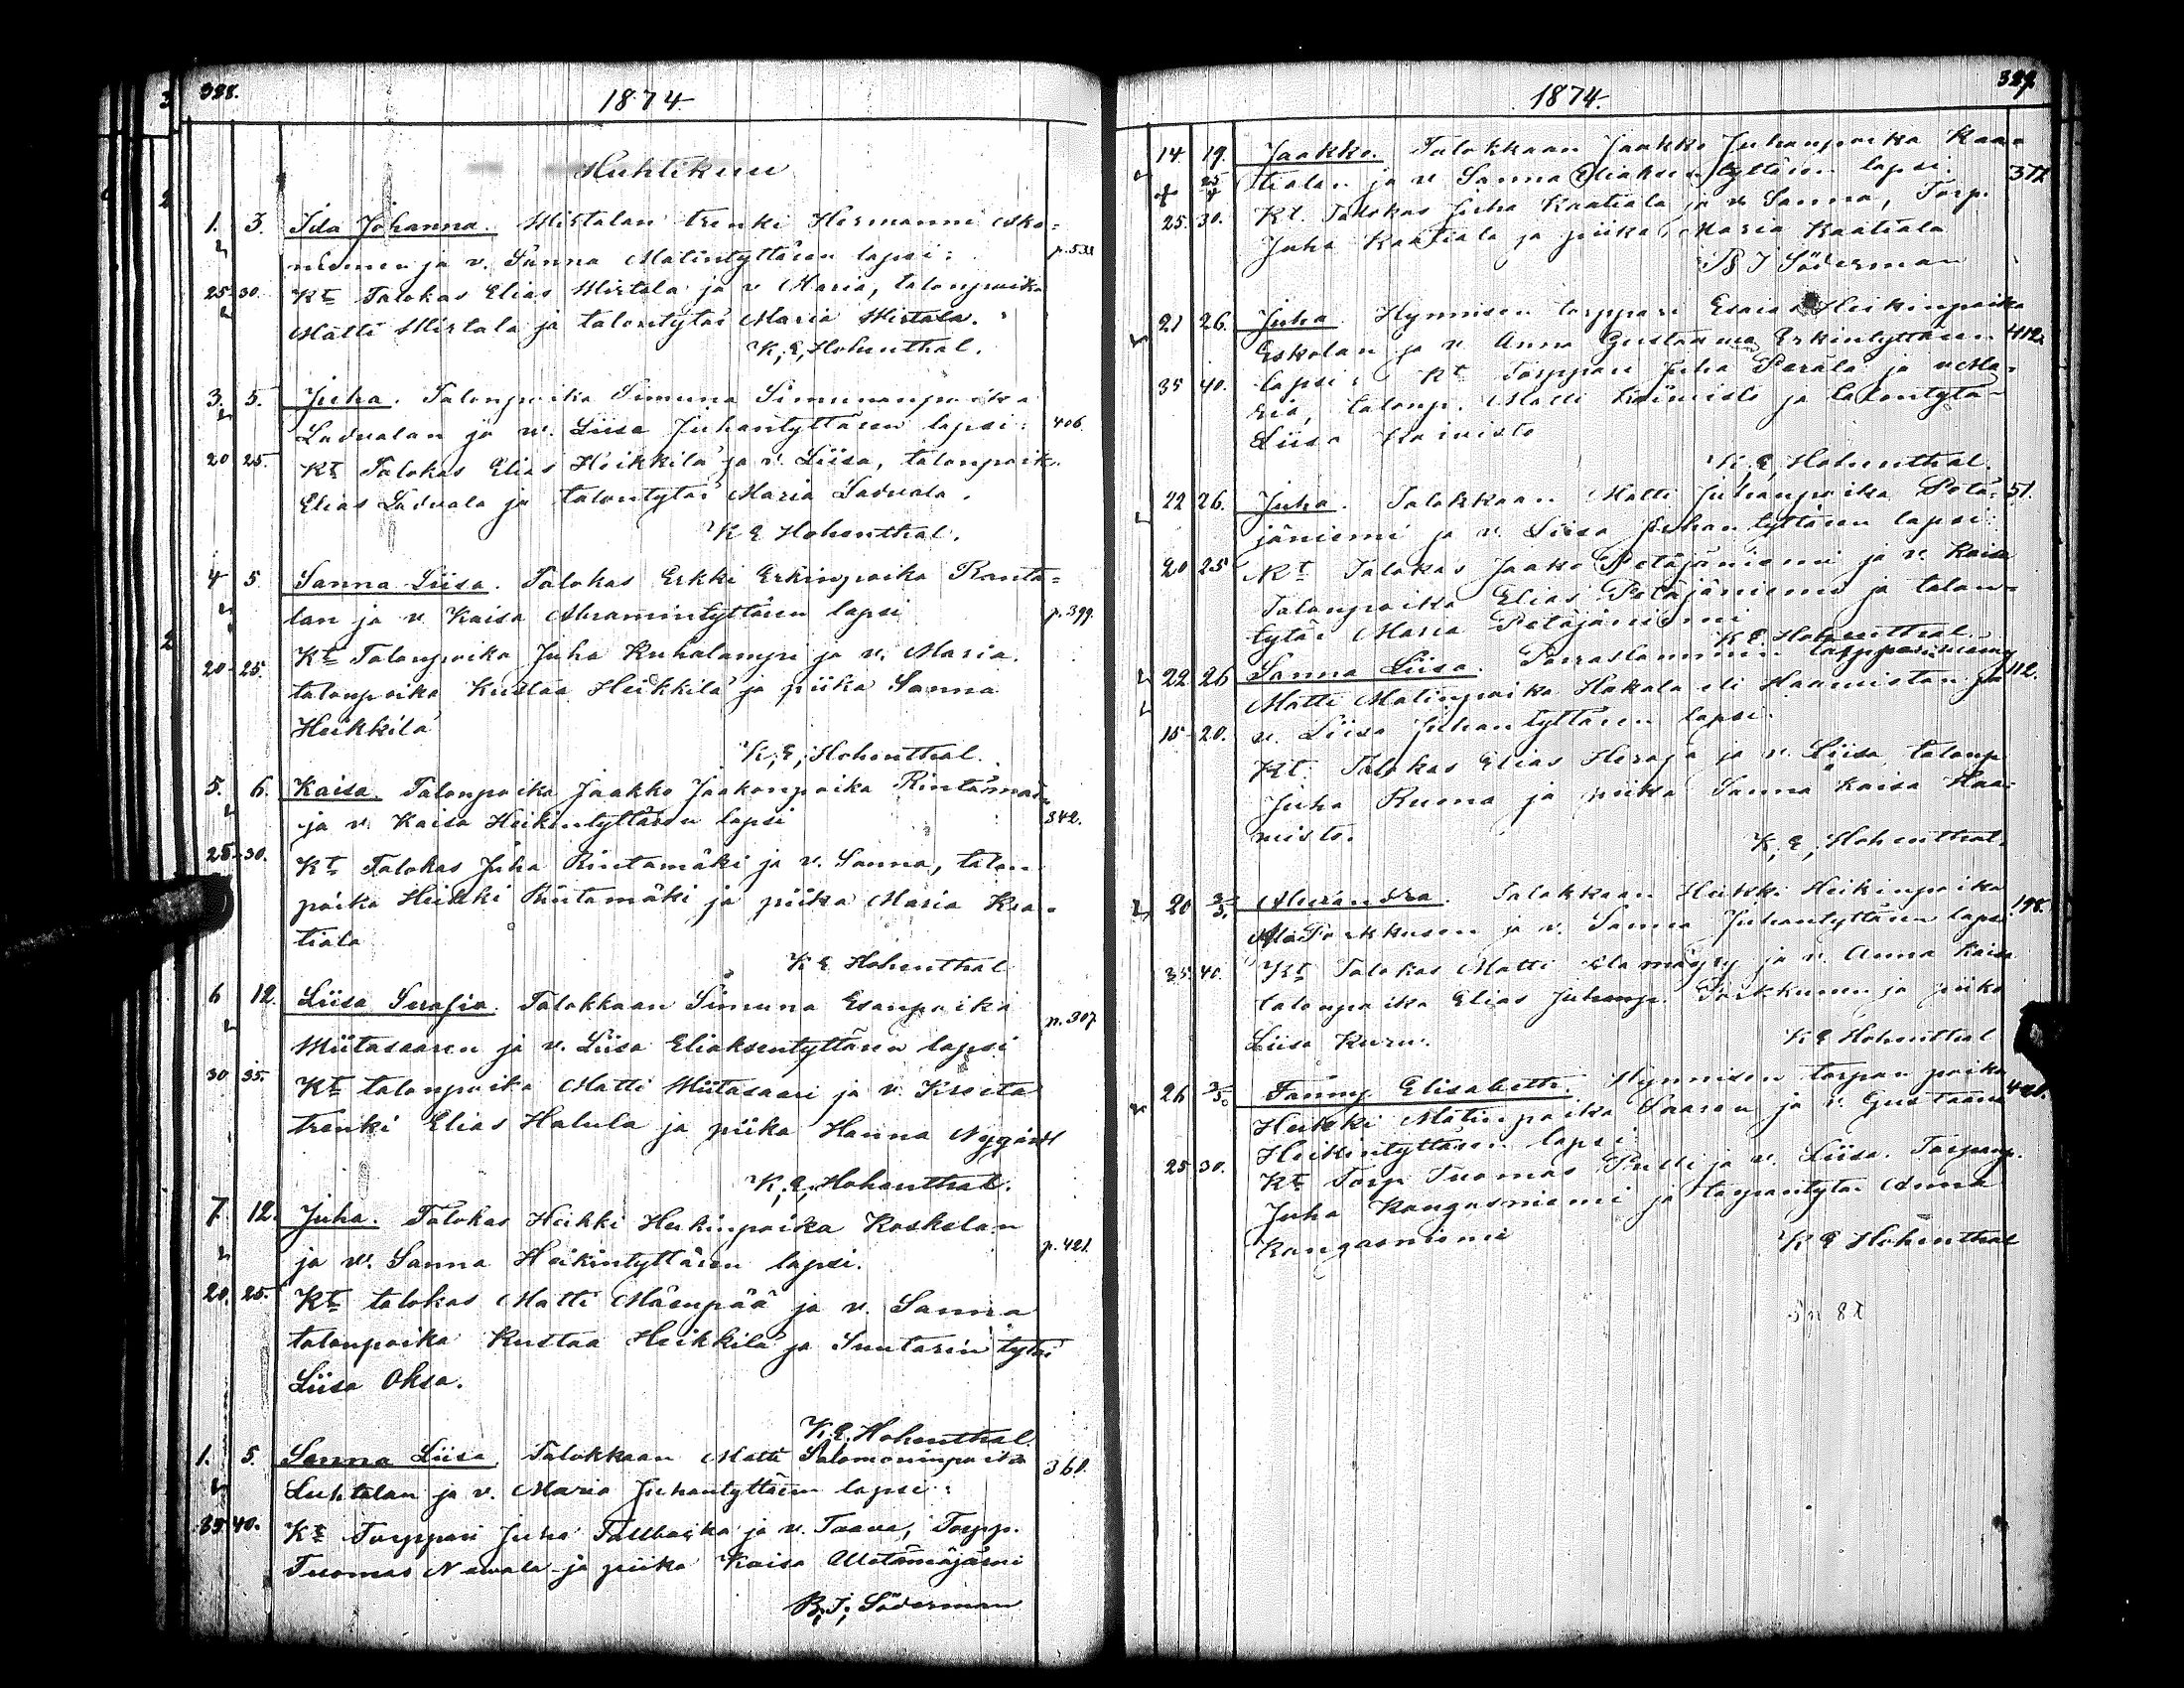 328.
1874.
Huhtikuu
1. 3. Ida Johanna. Mirtalan trenki Hermanni Asko=
niemen ja v. Sanna Matintyttären lapsi: p.533
25-30. Kt Talokas Elias Mirtala ja v Maria, talonpoika
Matti Mirtala ja talontytär Maria Mirtala.
K, E, Hohenthal.
3. 5. Juha. Talonpoika Simuna Simunanpoika
Ladvalan ja v. Liisa Juhantyttären lapsi: 406.
20 25. Kt Talokas Elias Heikkilä ja v. Liisa, talonpoik.
Elias Ladvala ja talontytär Maria Ladvala.
K E Hohenthal.
4 5. Sanna Liisa. Talokas Erkki Erkinpoika Ranta=
lan ja v. Kaisa Abramintyttären lapsi p.399.
20-25. Kt Talonpoika Juha Kuhalampi ja v. Maria.
talonpoika Kustaa Heikkilä ja piika Sanna
Heikkilä
K, E, Hohenthal.
5. 6. Kaisa. Talonpoika Jaakko Jaakonpoika Rintamäen
ja v. Kaisa Heikintyttären lapsi 342.
25-30. Kt Talokas Juha Rintamäki ja v. Sanna, talon
poika Heikki Rintamäki ja piika Maria Kaa=
tiala
K E Hohenthal
6 12. Liisa Serafia. Talokkaan Simuna Esanpoika
Miitasaaren ja v. Liisa Eliaksentyttären lapsi p.307
30 35. Kt talonpoika Matti Miitasaari ja v. Kreeta
trenki Elias Halula ja piika Hanna Nygård
K, E, Hohenthal.
7 12. Juha. Talokas Heikki Heikinpoika Koskelan
ja v. Sanna Heikintyttären lapsi. p.421
20. 25. Kt talokas Matti Mäenpää ja v. Sanna
talonpoika Kustaa Heikkilä ja Suutarin tytär
Liisa Oksa.
K. E. Hohenthal.
1. 5. Sanna Liisa. Talokkaan Matti Salomoninpoika
Luhtalan ja v. Maria Juhantyttären lapsi: 361.
35 40. Kt Torppari Juha Tallbacka ja v. Taava, Torpp.
Tuomas Nawala ja piika Kaisa Alatamäjärvi
B, J, Söderman
329.
1874.
14. 19. Jaakko. Talokkaan Jaakko Juhanpoika Kaa=
tialan ja v Sanna Eliaksentyttären lapsi. 372
25. 30. Kt. Talokas Juha Kaatiala ja v. Sanna, Torp.
Juha Kaatiala ja piika Maria Kaatiala
B J Söderman
21 26. Juha. Hynnisen torppari Esaias Heikinpoika
Eskolan ja v. Anna Gustaava Erkintyttären 412.
35 40. lapsi: Kt Torppari Juha Perälä ja v Ma=
ria, talonp. Matti Koivisto ja talontytär
Liisa Koivisto
K, E, Hohenthal.
22 26. Juha. Talokkaan Matti Juhanpoika Petä= 51.
jäniemi ja v. Liisa Juhantyttären lapsi:
20 25 Kt Talokas Jaako Petäjäniemi ja v. Kaisa
Talonpoika Elias Petäjäniemi ja talon=
tytär Maria Petäjäniemi
K E Hohenthal.
22 26 Sanna Liisa. Porraslammin torpparimiehen
Matti Matinpoika Hakala eli Haaviston ja 112.
15-20. v. Liisa Juhantyttären lapsi.
Kt. Talokas Elias Heraja ja v. Liisa, talonp.
Juha Ruona ja piika Sanna Kaisa Haa=
visto.
K, E, Hohenthal.
20 3/5. Talokkaan Heikki Heikinpoika
Ala Porkkusen ja v. Sanna Juhantyttären lapsi 198.
35 40. Kt Talokas Matti Alamäyry ja v. Anna Kaisa
talonpoika Elias Juhanp. Porkkunen ja piika
Liisa Kuru.
K E Hohenthal
26 3/5. Fanny Elisabetti. Hynnisen torpan poika
Heikki Matinpoika Saaren ja v. Gustaava
Heikintyttären lapsi
25 30. Kt Torp Tuomas Pulli ja v. Liisa. Torpanp.
Juha Kangasniemi ja torpantytär Anna
Kangasniemi
K E Hohenthal